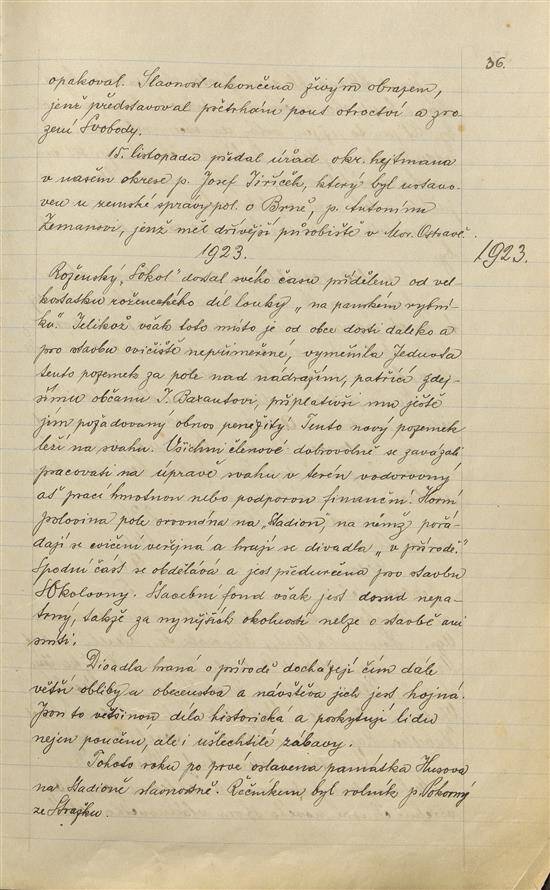 36.
opakoval. Slavnost ukončena živým obrazem,
jenž představoval přetrhání pout otroctví a zro
zení Svobody.
15. listopadu předal úřad okr. hejtmana
v našem okrese p. Josef Jiříček, který byl ustano-
ven u zemské správy pol. v Brně, p. Antonínu
Zemanovi, jenž měl dřívější působiště v Mor. Ostravě.
1923.
1923.
Roženský „Sokol" dostal svého času přídělem od vel
kostatku roženeckého díl louky „na panském rybní-
ku". Jelikož však toto místo je od obce dosti daleko a
pro stavbu cvičiště nepřiměřené, vyměnila Jednota
tento pozemek za pole nad nádražím, patřící zdej-
šímu občanu J. Baxantovi, připlativši mu ještě
jím požadovaný obnos peněžitý. Tento nový pozemek
leží na svahu. Všichni členové dobrovolně se zavázali
pracovati na úpravě svahu v terén vodorovný
ať prací hmotnou nebo podporou finanční. Horní
polovina pole srovnána na „Stadion", na němž pořá-
dají se cvičení veřejná a hrají se divadla „v přírodě."
Spodní část se obdělává a jest předurčena pro stavbu
Sokolovny. Stavební fond však jest dosud nepa-
trný, takže za nynějších okolností nelze o stavbě ani
sníti.
Divadla hraná v přírodě docházejí čím dále
větší obliby u obecenstva a návštěva jich jest hojná.
Jsou to většinou díla historická a poskytují lidu
nejen poučení, ale i ušlechtilé zábavy.
Tohoto roku po prvé oslavena památka Husova
na Stadioně slavnostně. Řečníkem byl rolník p. Pokorný
ze Strážku.